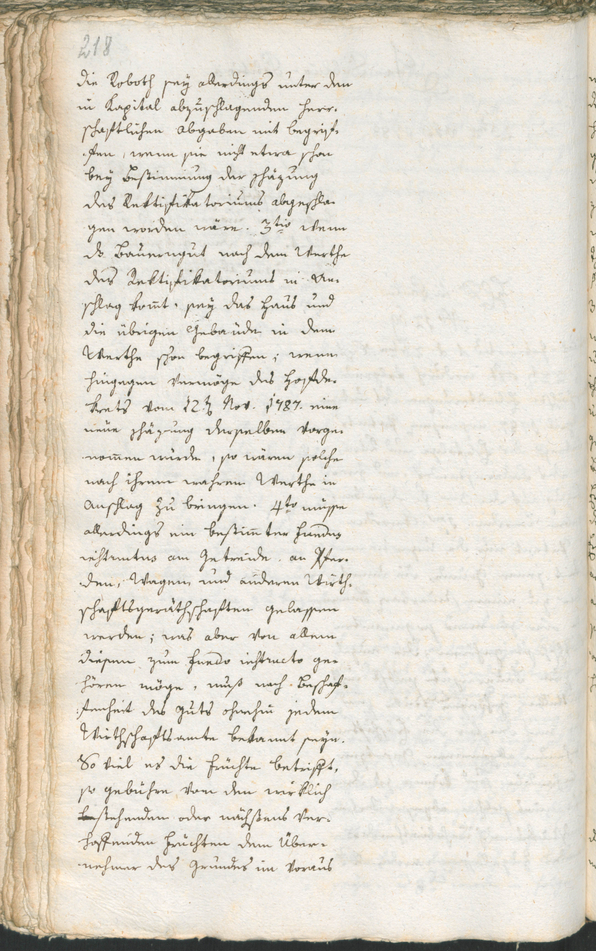 218
die Roboth seÿ allerdings unter den
in Kapital abzuschlagenden herr-
schaftlichen Abgaben mit begrif-
fen, wenn sie nicht etwa schon
beÿ Bestimmung der Schäzung
des Rektifikatoriums abgeschla-
gen worden wäre. 3tio wenn
ds Bauerngut nach dem Werthe
des Rektifikatoriums in An-
schlag komt, seÿ das Haus und
die übrigen Gebäude in dem
Werthe schon begriffen; wenn
hingegen vermöge des Hofde-
krets vom 12t Nov. 1787. eine
neüe Schäzung derselben vorge-
nommen würde, so wären solche
nach ihrem wahren Werthe in
Anschlag zu bringen. 4to müsse
allerdings ein bestimter fundus
instructus am Getreide, an Pfer-
den, Wagen, und anderen Wirth-
schaftsgeräthschaften gelassen
werden; was aber von allem
diesem zum fundo instructo ge-
hören möge, muß nach Beschaf-
fenheit des Guts ohnehin jedem
Wirthschaftsamte bekannt seÿn.
So viel es die Früchte betrifft,
so gebühre von den wirklich
bestehenden oder nächstens ver-
hoffenden Früchten dem Über-
nehmer des Grundes im voraus